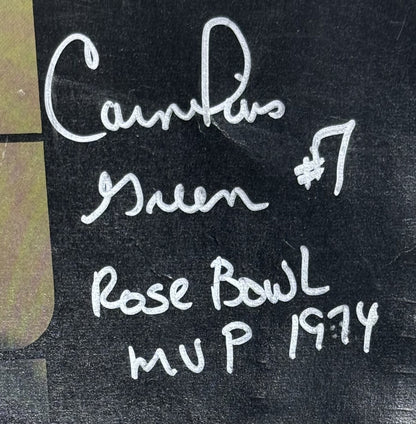 Cornelius
Green #7
Rose Bowl
MVP 1974